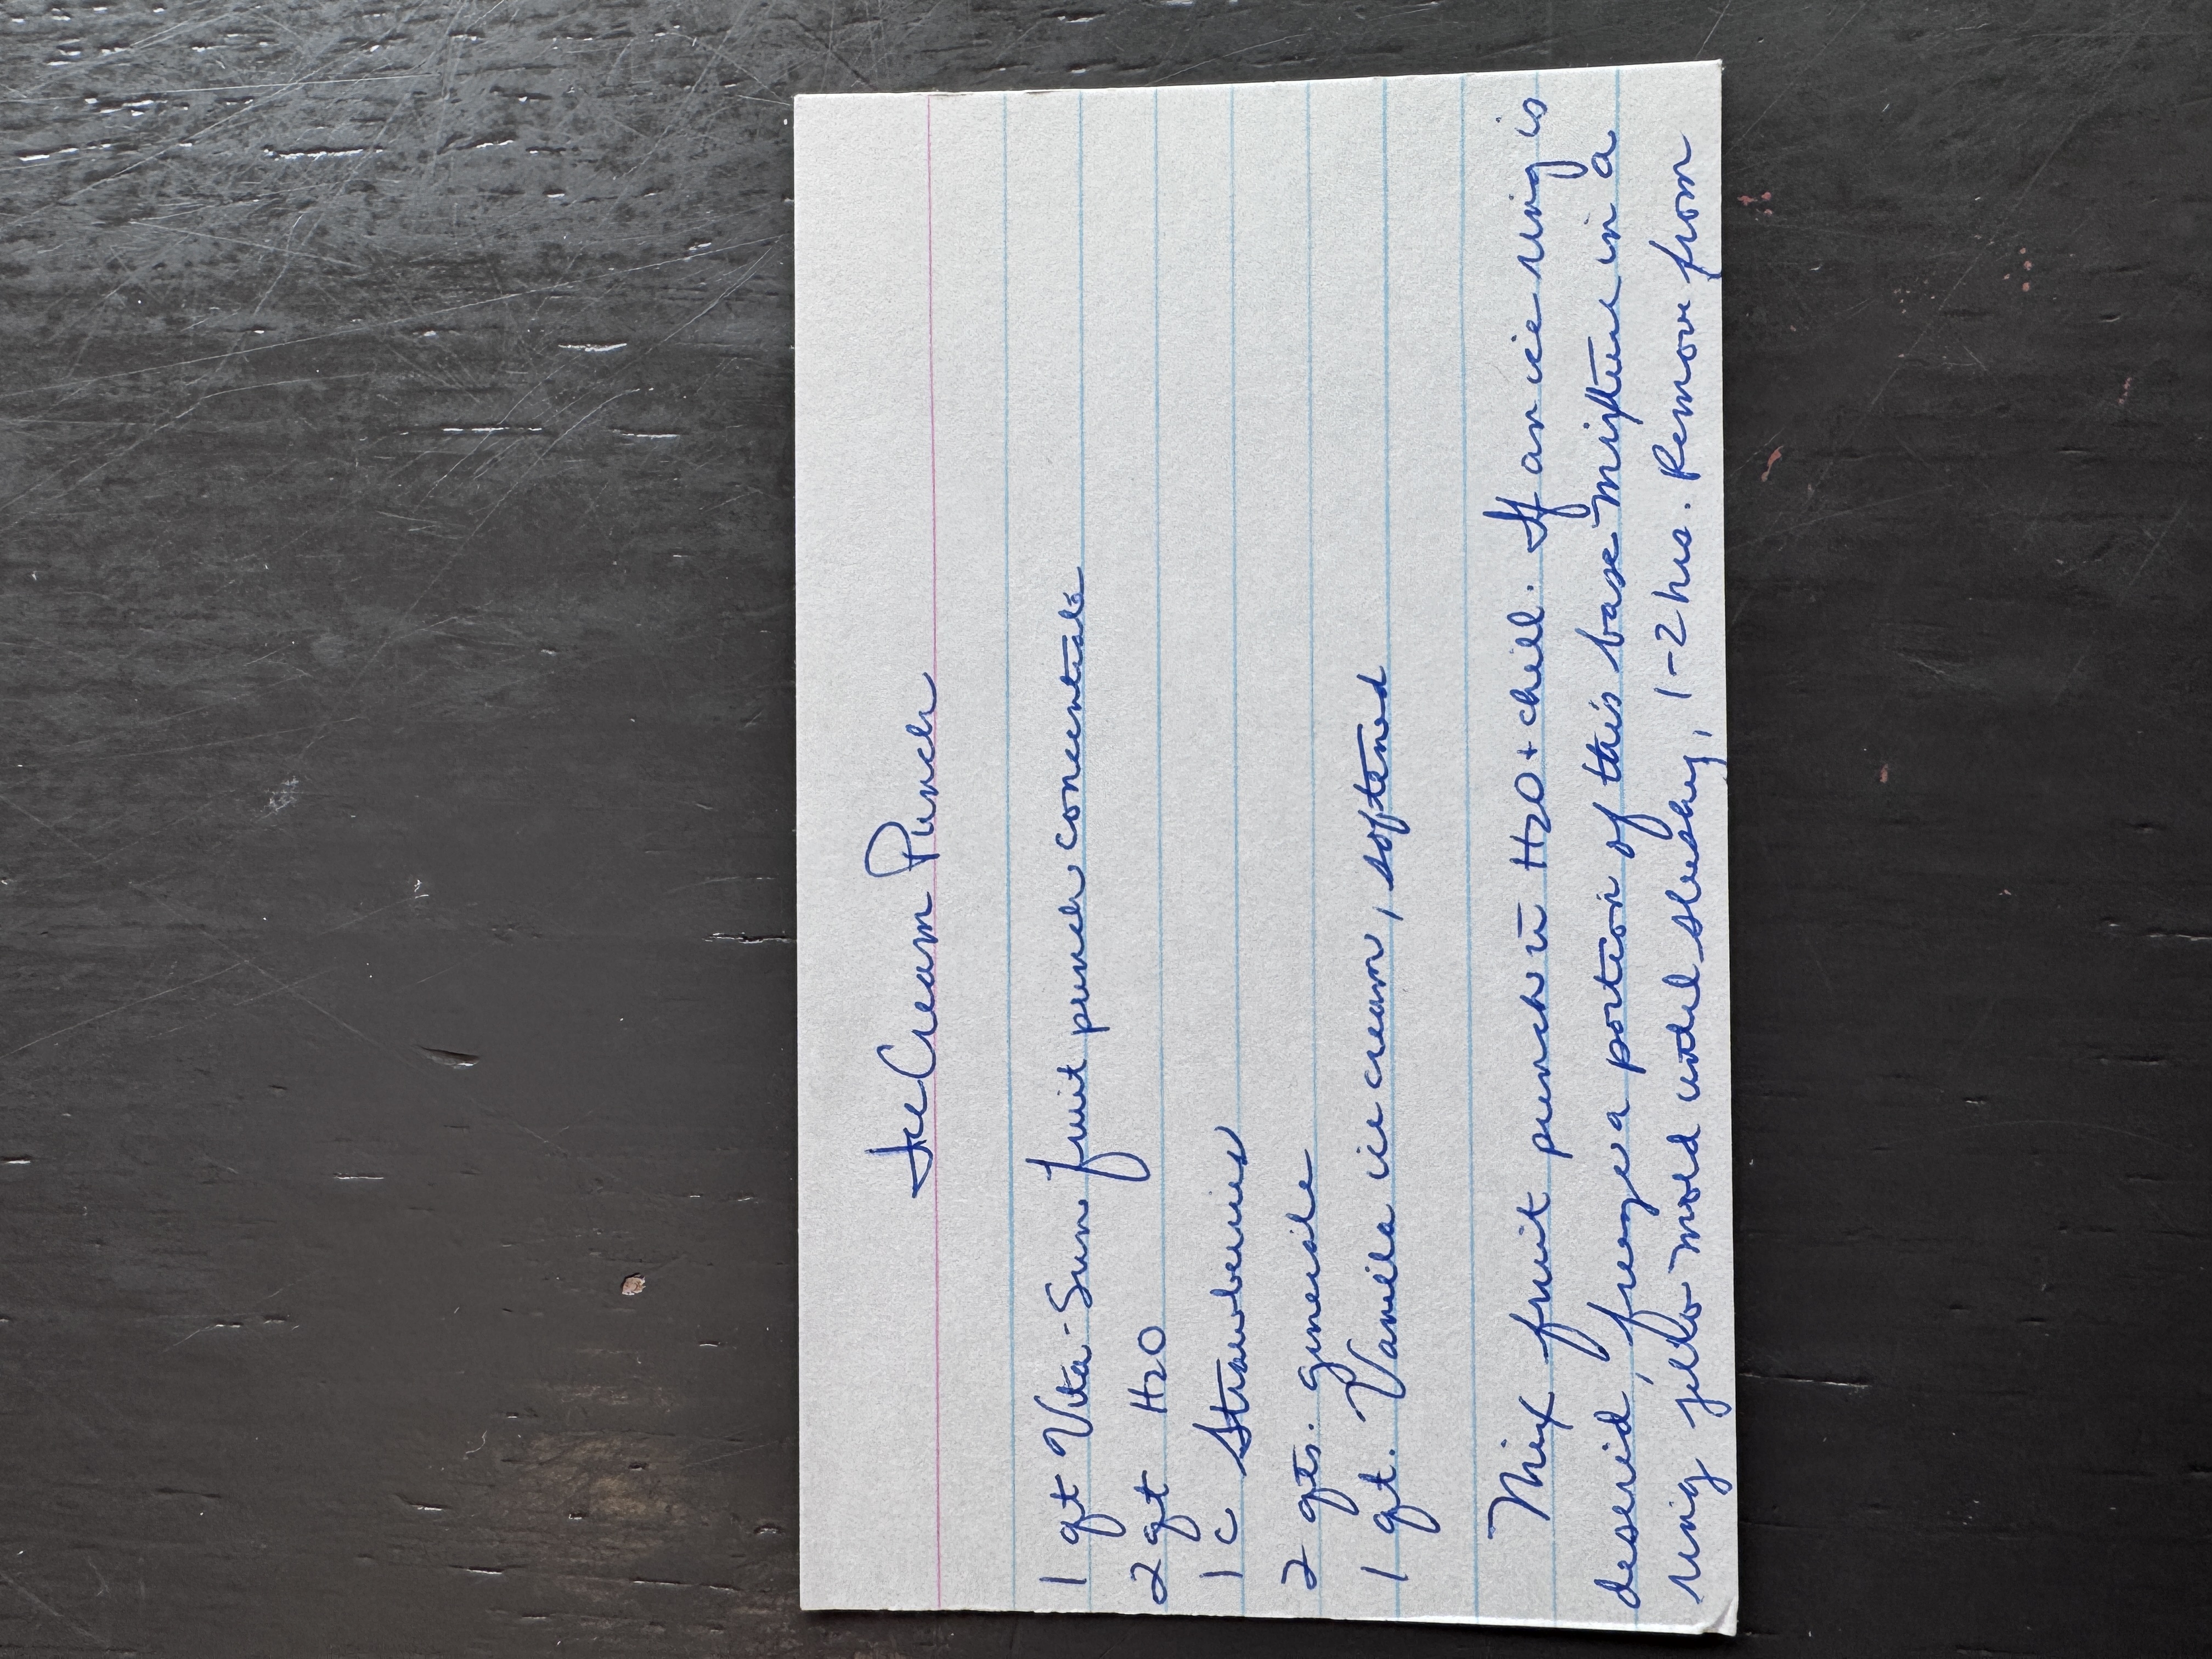 Ice Cream Punch
1 qt Vita-Sun fruit punch concentrate
2 qt H2O
1 c Strawberries
2 qts. gingerale
1 qt. Vanilla ice cream, softened
Mix fruit punch c̄ H2O + chill. If an ice ring is
desired, freeze a portion of this base mixture in a
ring jello mold until slushy, 1-2 hrs. Remove from